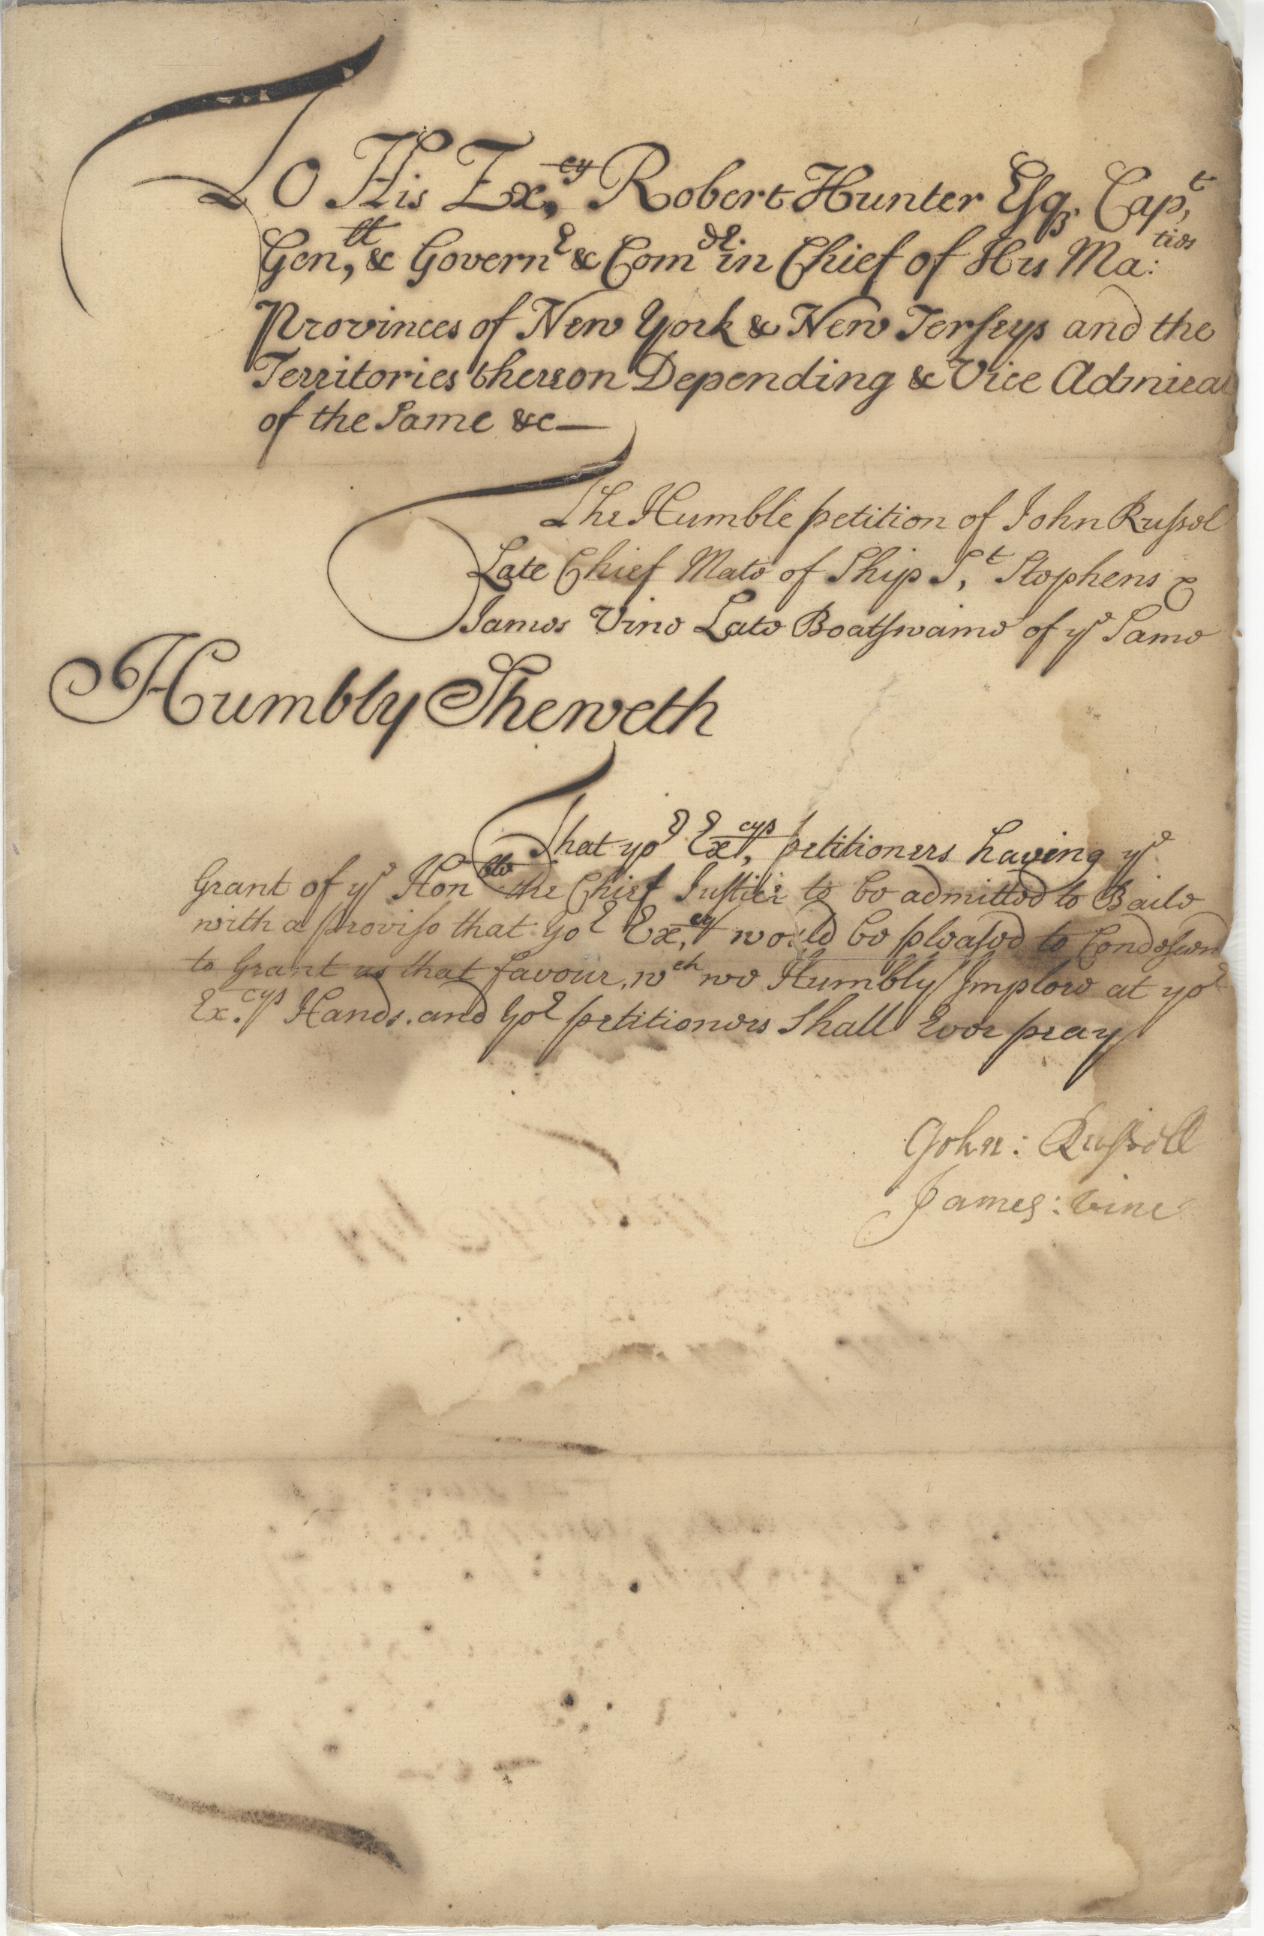 To His Ex,cy Robert Hunter Esqr, Cap,t
Gen,ll & Governr & Comdr in Chief of His Ma:ties
Provinces of New York & New Jerseys and the
Territories thereon Depending & Vice Admiral
of the Same &c—
The Humble petition of John Russel
Late Chief Mate of Ship S,t Stephens &
James Vine Late Boatswaine of ye Same
Humbly Sheweth
That yor Ex,cys petitioners having ye
Grant of ye Honble the Chief Justice to be admitted to Baile
with a proviso that yor Ex,cy would be pleased to Condescend
to Grant us that favour, wch we Humbly Implore at yor
Ex,cys Hands. and yor petitioners Shall Ever pray
John: Russell
James: Vine